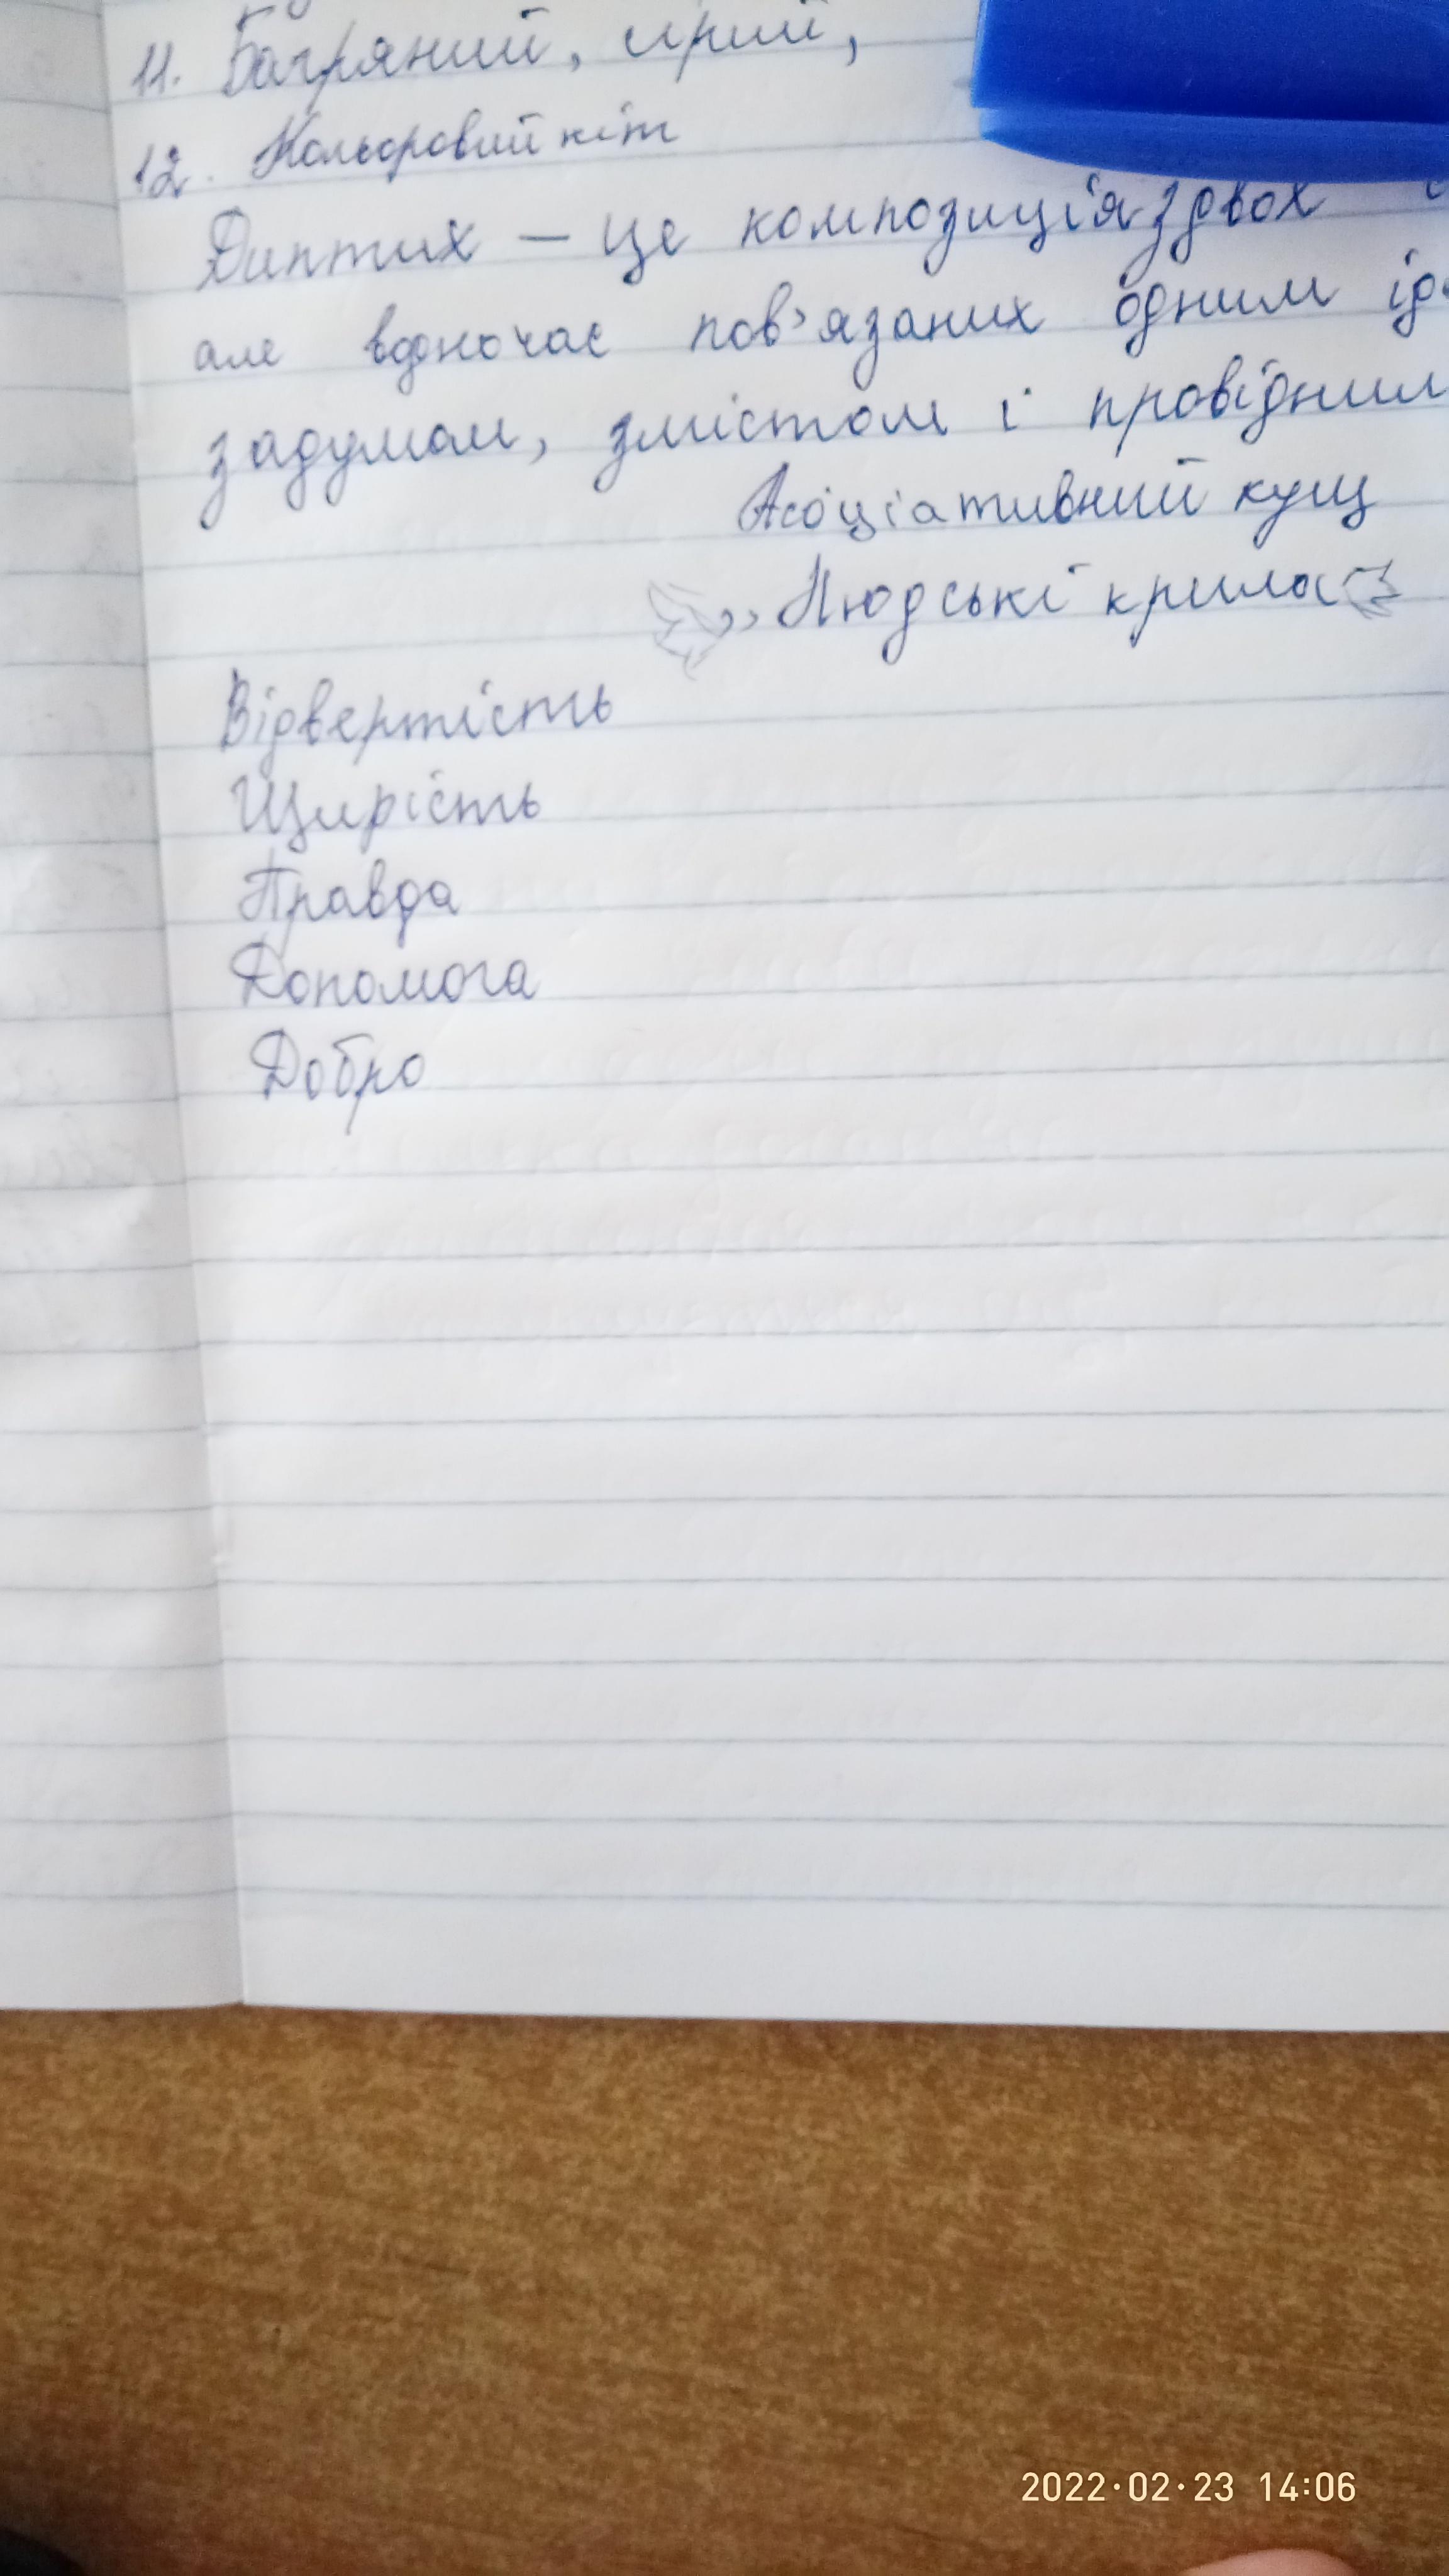 11. Багряний, сірий,
12. Кольоровий кіт
Диптих — це композиція з двох
але водночас пов'язаних одним ід
задумом, змістом і провідним
Асоціативний кущ
,, Людські крила
Відвертість
Щирість
Правда
Допомога
Добро
2022·02·23 14:06